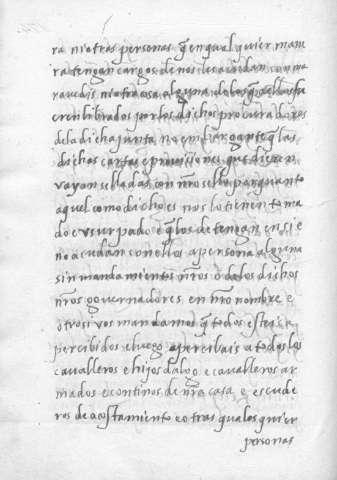 ra ni otras personas q̃ en qual quier mane
ra tengan cargo de nos les acudan con ma
ravedis ni otra cosa alguna de los q̃ a ellos fu
eren librados por los dichos procuradores
de la dicha junta no embargante q̃ las
dichas cartas e provisiones que dieren
vayan selladas con nr̃o sello por quanto
aquel como dicho es nos lo tienen toma
do e usurpado e q̃ los detengan en si e
no acudan con ellos a persona alguna
sin mandamientos nr̃os o de los dichos
nr̃os governadores en nr̃o nombre e
otrosi vos mandamos q̃ todos esteis a
percibidos e luego apercibais a todos los
cavalleros e hijos dalgo e cavalleros ar
mados e continos de nr̃a casa e escude
ros de acostamiento e otras quales quier
personas